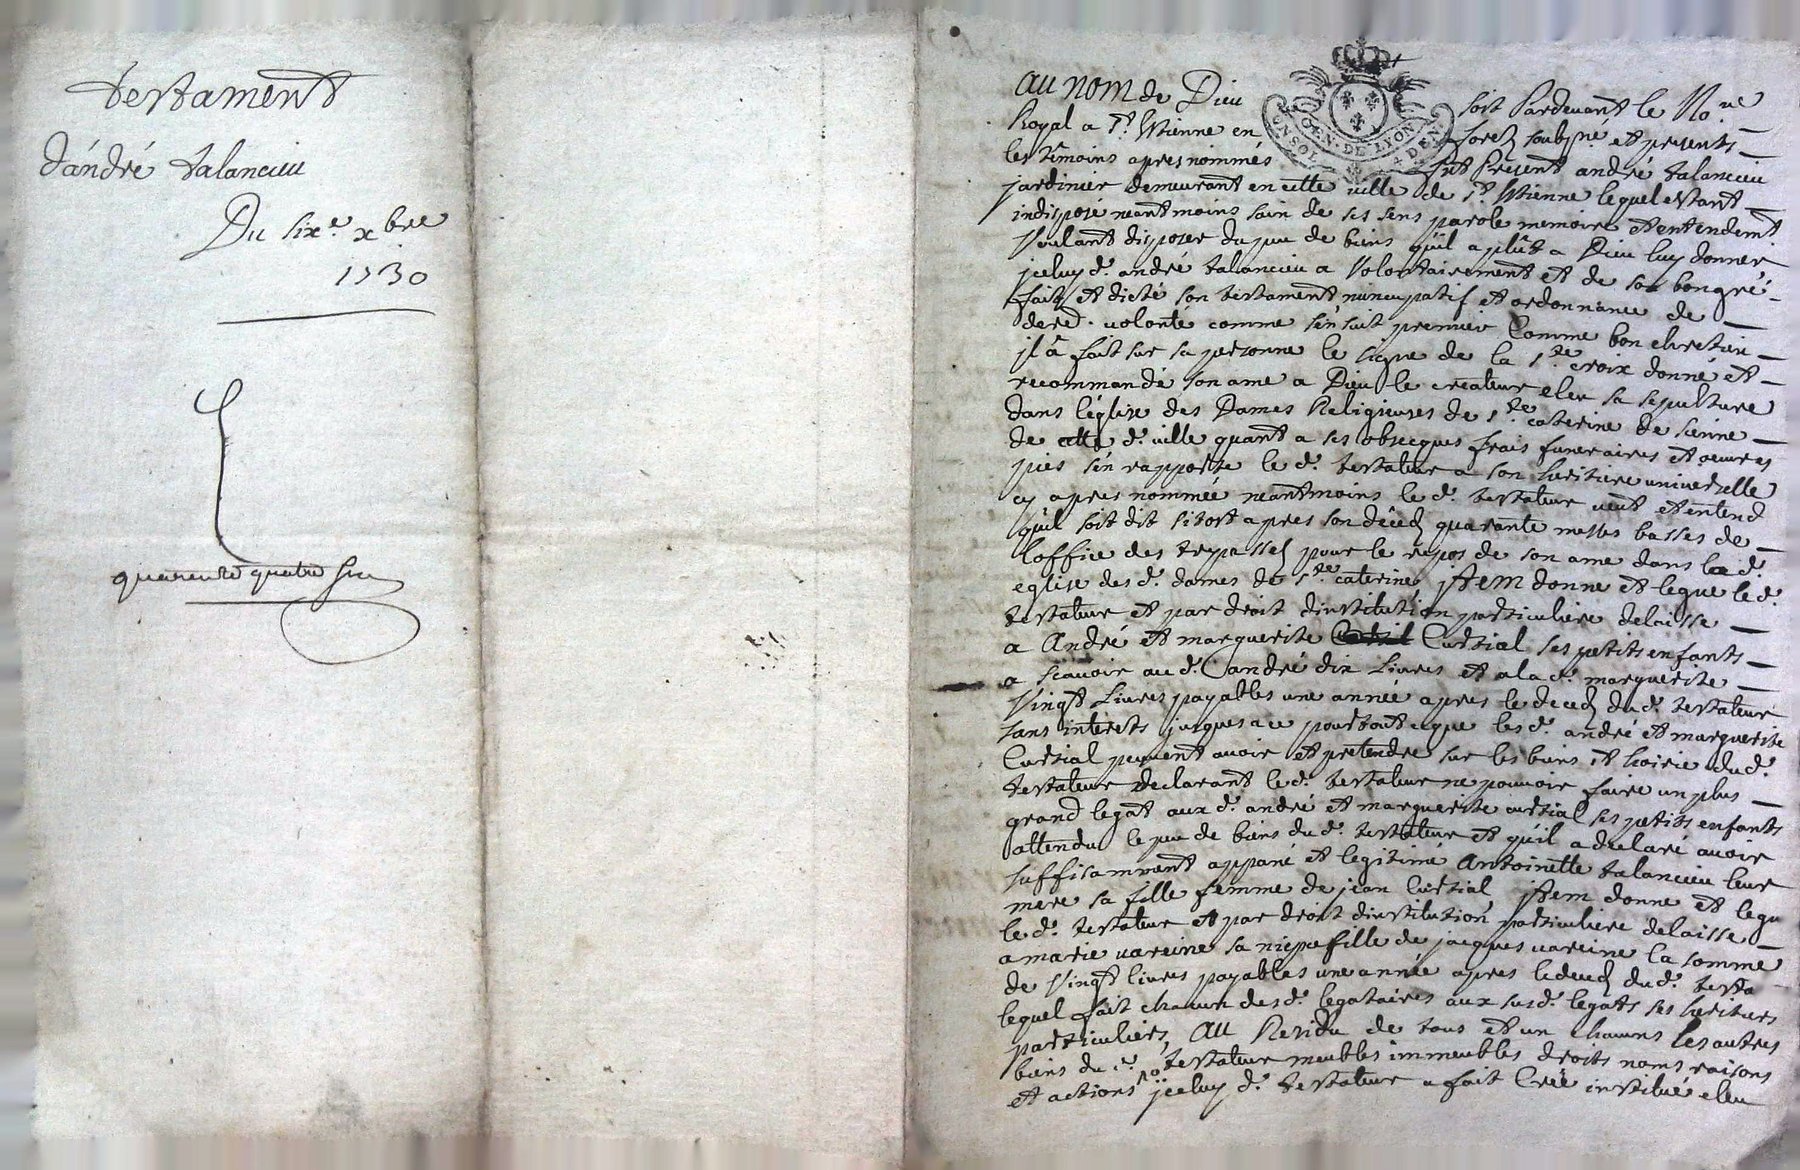 testament
d'andré talancieu
Du six.e xbre
1730
quarente quatre
au nom de Dieu soit Pardevant le No.re
Royal a St. Etienne en forez soubz.né et presents
les têmoins apres nommés fut Present andré talancieu
jardinier demeurant en cette ville de St. Etienne lequel estant
indisposé neantmoins sain de ses sens parole memoire et entendemt.
Voulant disposer du peu de biens qu'il a plût a Dieu luy donner
jceluy d. andré talancieu a Volontairement et de son bongré
fait et dicté son testament nuncupatif et ordonnance de
dere. volonté comme s'en suit premier Comme bon chretien
jl â fait sur sa personne le signe de la Ste croix donné et
recommandé son ame a Dieu le createur eleu sa sepulture
dans l'église des Dames Religieuses de Ste caterine de sienne
de cette d. ville quant a ses obsecques frais funeraires et oeuvres
pies s'en rapporte le d. testateur a son heritiere universelle
cy apres nommée neantmoins le d. testateur veut et entend
qu'il soit dit sitost apres son décéd quarante messes basses de
l'office des trepassés pour le repos de son ame dans la d.
eglise des d. dames de Ste caterine jtem donne et legue le d.
testateur et par droit d'institution particuliere delaisse
a André et marguerite Curtial ses petits enfants
a scavoir au d. andré dix Livres et a la d. marguerite
Vingt Livres payables une année apres le deced du d. testateur
sans interêts jusques a ce pourtout ce que les d. andré et marguerite
Curtial peuvent avoir et pretendre sur les biens et hoirie du d.
testateur declarant le d. testateur ne pouvoir faire un plus
grand legat aux d. andré et marguerite curtial ses petits enfants
attendu le peu de biens du d. testateur et qu'il a declaré avoir
suffisamment appané et legitimé Antoinette talancieu leur
mere sa fille femme de jean Curtial jtem donne et legu
le d. testateur et par droit d'institution particuliere delaisse
a marie vareine sa niepce fille de jacques vareine la somme
de Vingt livres payables une année apres le deced du d. testa
lequel fait chacun des d. legataires aux susd. legats ses heritiers
particuliers, au Residu de tous et un chacuns les autres
biens du d. testateur meubles immeubles droits noms raisons
et actions jceluy d. testateur a fait Créé institué eleu